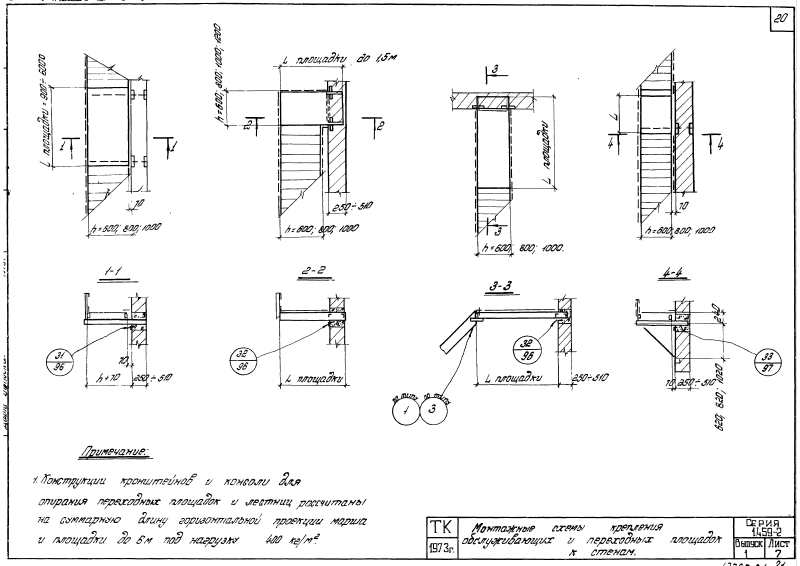 20
L площадки = 900÷6000
1
1
10
h=600; 800; 1000
h=600; 800; 1000; 1200
L площадки до 1,5м
2
2
250÷510
h=600; 800; 1000
3
L площадки
3
h=600; 800; 1000.
L
4
4
10
h=600; 800; 1000
1-1
31
96
10
h+10
250÷510
2-2
32
96
L площадки
3-3
32
96
L площадки
250÷510
по типу
1
по типу
3
4-4
240
33
97
10
250÷510
620; 820; 1020
Примечание:
1. Конструкции кронштейнов и консоли для
опирания переходных площадок и лестниц рассчитаны
на суммарную длину горизонтальной проекции марша
и площадки до 6м под нагрузку 400 кг/м²
ТК
1973г.
Монтажные схемы крепления
обслуживающих и переходных площадок
к стенам.
Серия
1.459-2
Выпуск
1
Лист
7